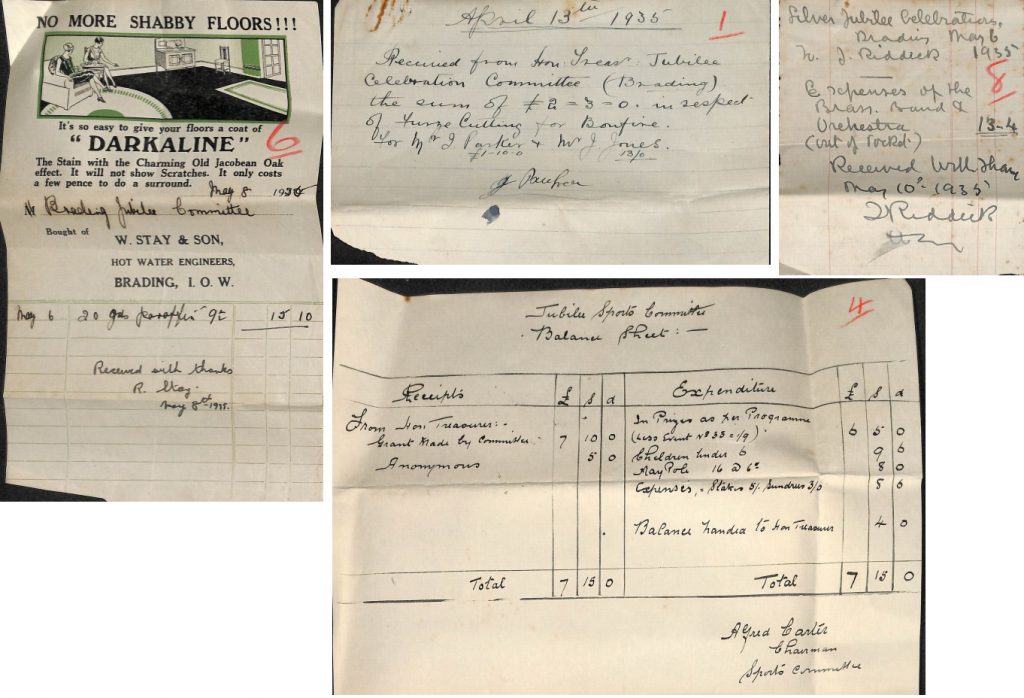 NO MORE SHABBY FLOORS!!!
It's so easy to give your floors a coat of
"DARKALINE"
The Stain with the Charming Old Jacobean Oak
effect. It will not show Scratches. It only costs
a few pence to do a surround.
6
May 8 193
Brading Jubilee Committee
Bought of
W. STAY & SON,
HOT WATER ENGINEERS,
BRADING, I. O. W.
May 6 20 gals paraffin 9½ 15 10
Received with thanks
R. Stay.
May 8th 1935.
April 13th 1935
1
Received from Hon: Treas: Jubilee
Celebration Committee (Brading)
the sum of £2=3=0. in respect
of Furze Cutting for Bonfire.
For Mr J Parker & Mr J Jones.
£1-10-0 13/0
Silver Jubilee Celebrations.
Brading May 6
J. Riddick 1935
8
Expenses of the
Brass Band &
Orchestra 13-4
(out of pocket)
Received With Thanks
May 10th 1935
J Riddick
4
Jubilee Sports Committee
Balance Sheet:—
Receipts £ s d Expenditure £ s d
From Hon Treasurer:- In Prizes as per Programme
Grant Made by Committee. 7 10 0 (Less Event No 33 = 1/9) 6 5 0
Anonymous 5 0 Children under 6 9 6
May Pole 16 @ 6d 8 0
Expenses, Stakes 5/. Sundries 3/6 8 6
Balance handed to Hon Treasurer 4 0
Total 7 15 0 Total 7 15 0
Alfred Carter
Chairman
Sports Committee